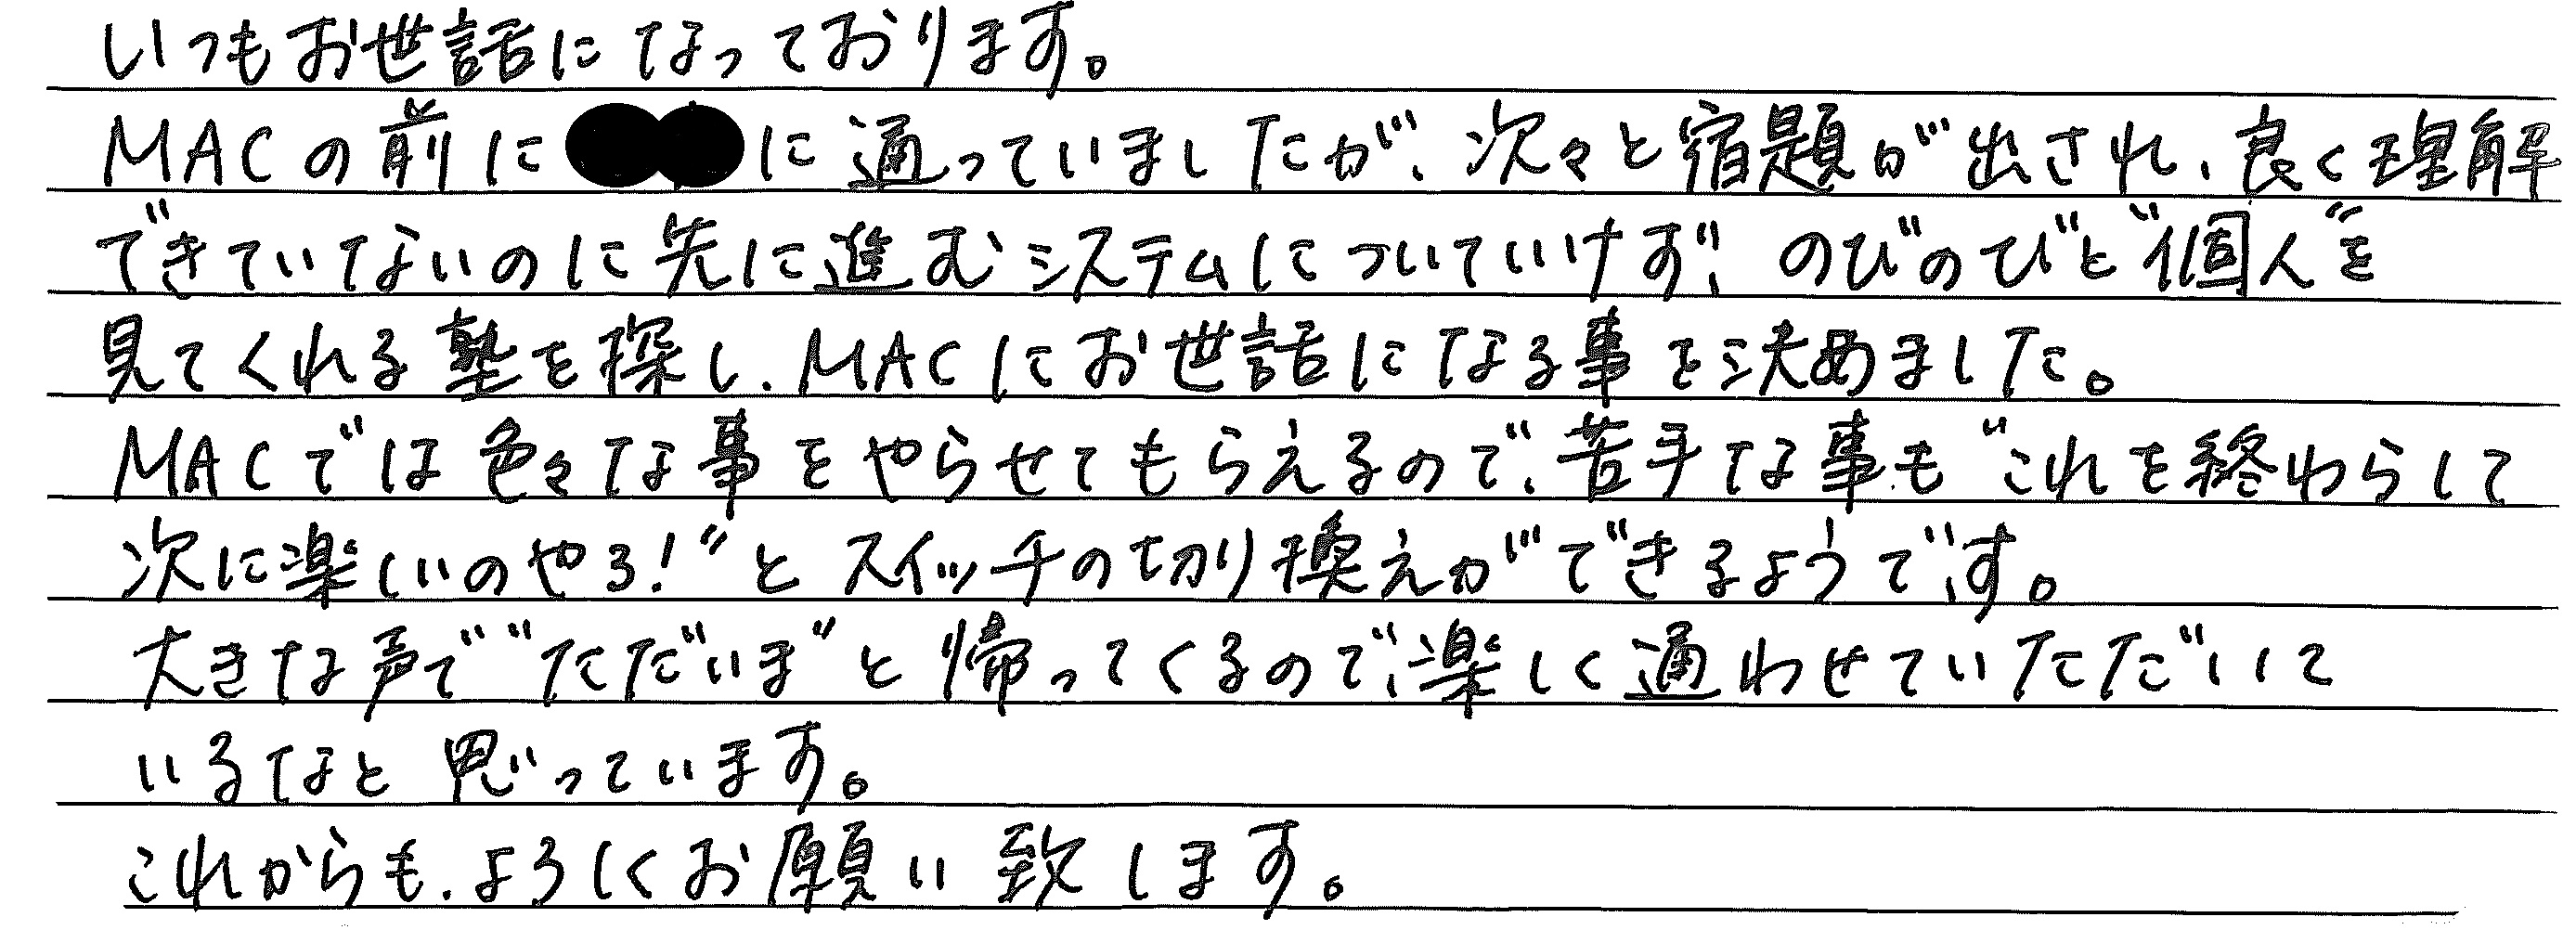 いつもお世話になっております。
MACの前に に通っていましたが、次々と宿題が出され、良く理解
できていないのに先に進むシステムについていけず、のびのびと“個人”を
見てくれる塾を探し、MACにお世話になる事を決めました。
MACでは色々な事をやらせてもらえるので、苦手な事も“これを終わらして
次に楽しいのやろ！”とスイッチの切り換えができるようです。
大きな声で“ただいま”と帰ってくるので、楽しく通わせていただいて
いるなと思っています。
これからも、よろしくお願い致します。